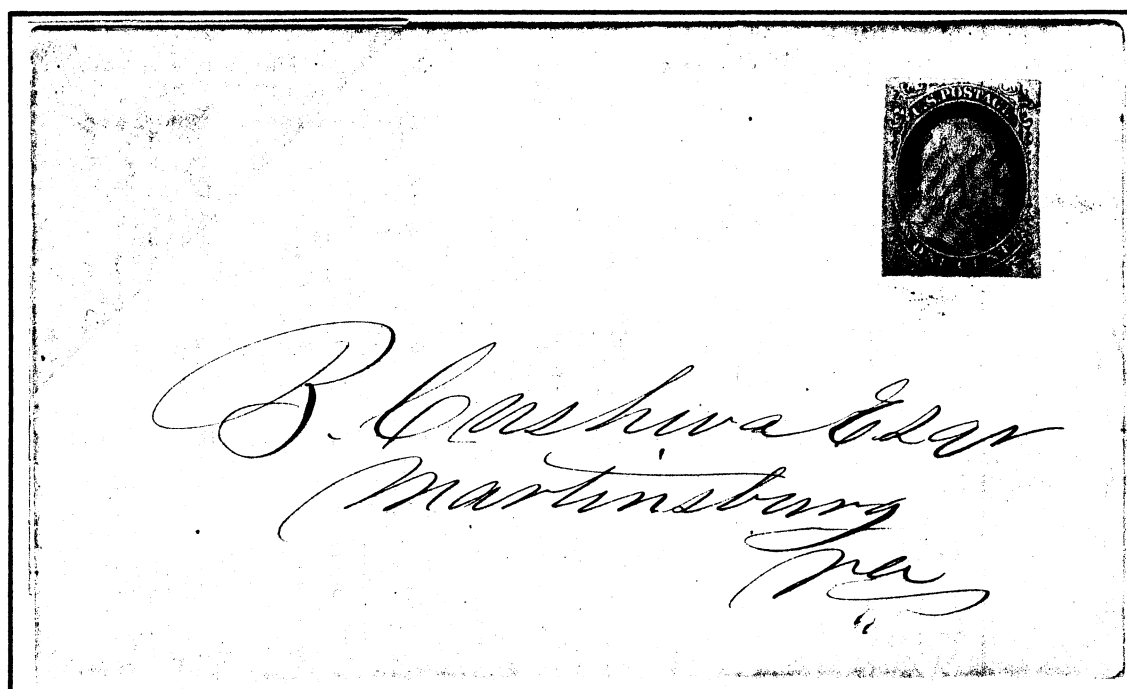 U.S. POSTAGE
ONE CENT
B. Cushwa Esqr
Martinsburg
Va